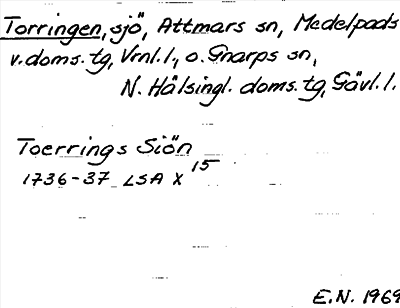 Torringen, sjö, Attmars sn, Medelpads
v. doms. tg, Vrnl. l., o. Gnarps sn,
N. Hälsingl. doms. tg, Gävl. l.
Toerrings Siön
1736-37 LSA X 15
E.N. 1969